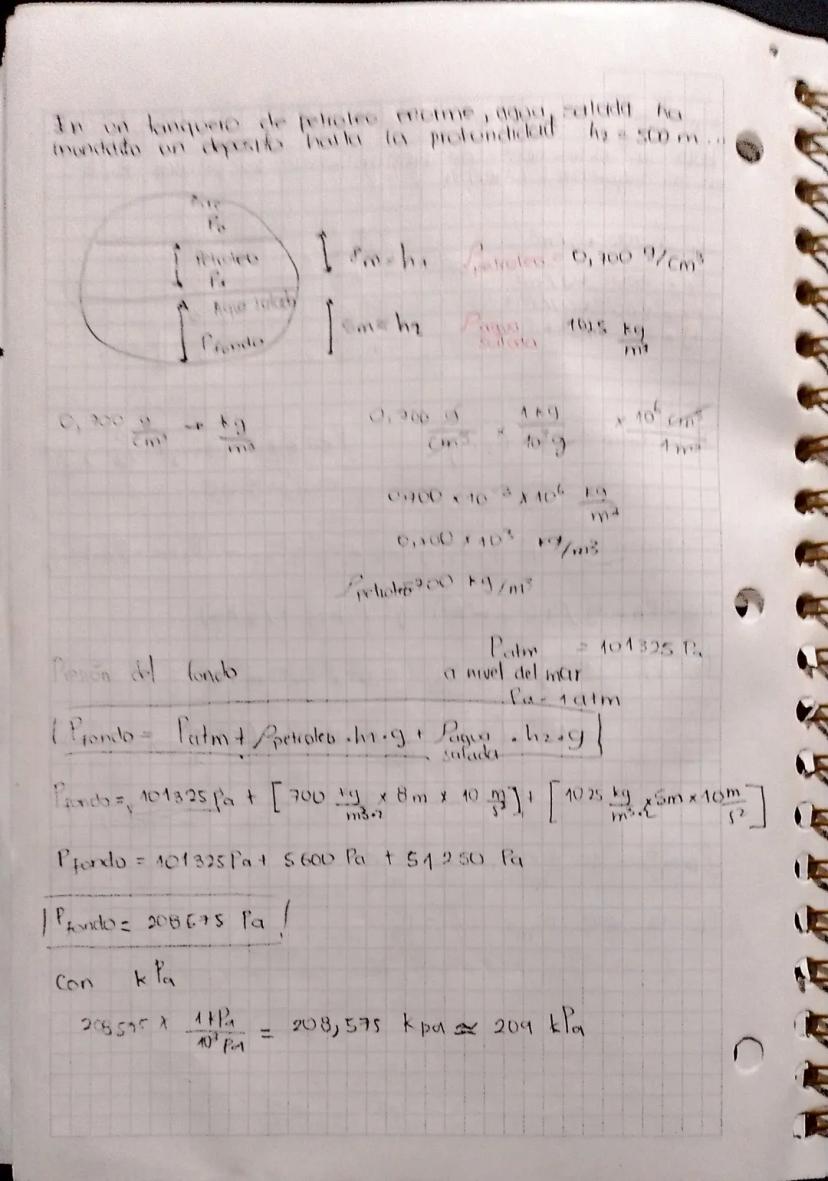 En un tanquero de petroleo enorme, agua salada ha
inundado un deposito hasta la profundidad h2 = 500 m ...
Aire
Po
Petroleo
P1
Agua salada
Pfondo
8m = h1
5m = h2
ρpetroleo = 0,700 g/cm³
ρagua salada = 1025 kg/m³
0,700 g/cm³ → kg/m³
0,700 g/cm³ × 1 kg/10³ g × 10⁶ cm³/1 m³
0,700 × 10⁻³ × 10⁶ kg/m³
0,700 × 10³ kg/m³
ρpetroleo 700 kg/m³
Presión del fondo
Patm = 101325 Pa
a nivel del mar
Pa = 1atm
Pfondo = Patm + ρpetroleo . h1 . g + ρagua salada . h2 . g
Pfondo = 101325 Pa + [700 kg/m³ × 8m × 10 m/s²] + [1025 kg/m³ × 5m × 10 m/s²]
Pfondo = 101325 Pa + 5600 Pa + 51250 Pa
Pfondo = 208575 Pa
Con kPa
208575 × 1kPa/10³ Pa = 208,575 kpa ≃ 209 kPa